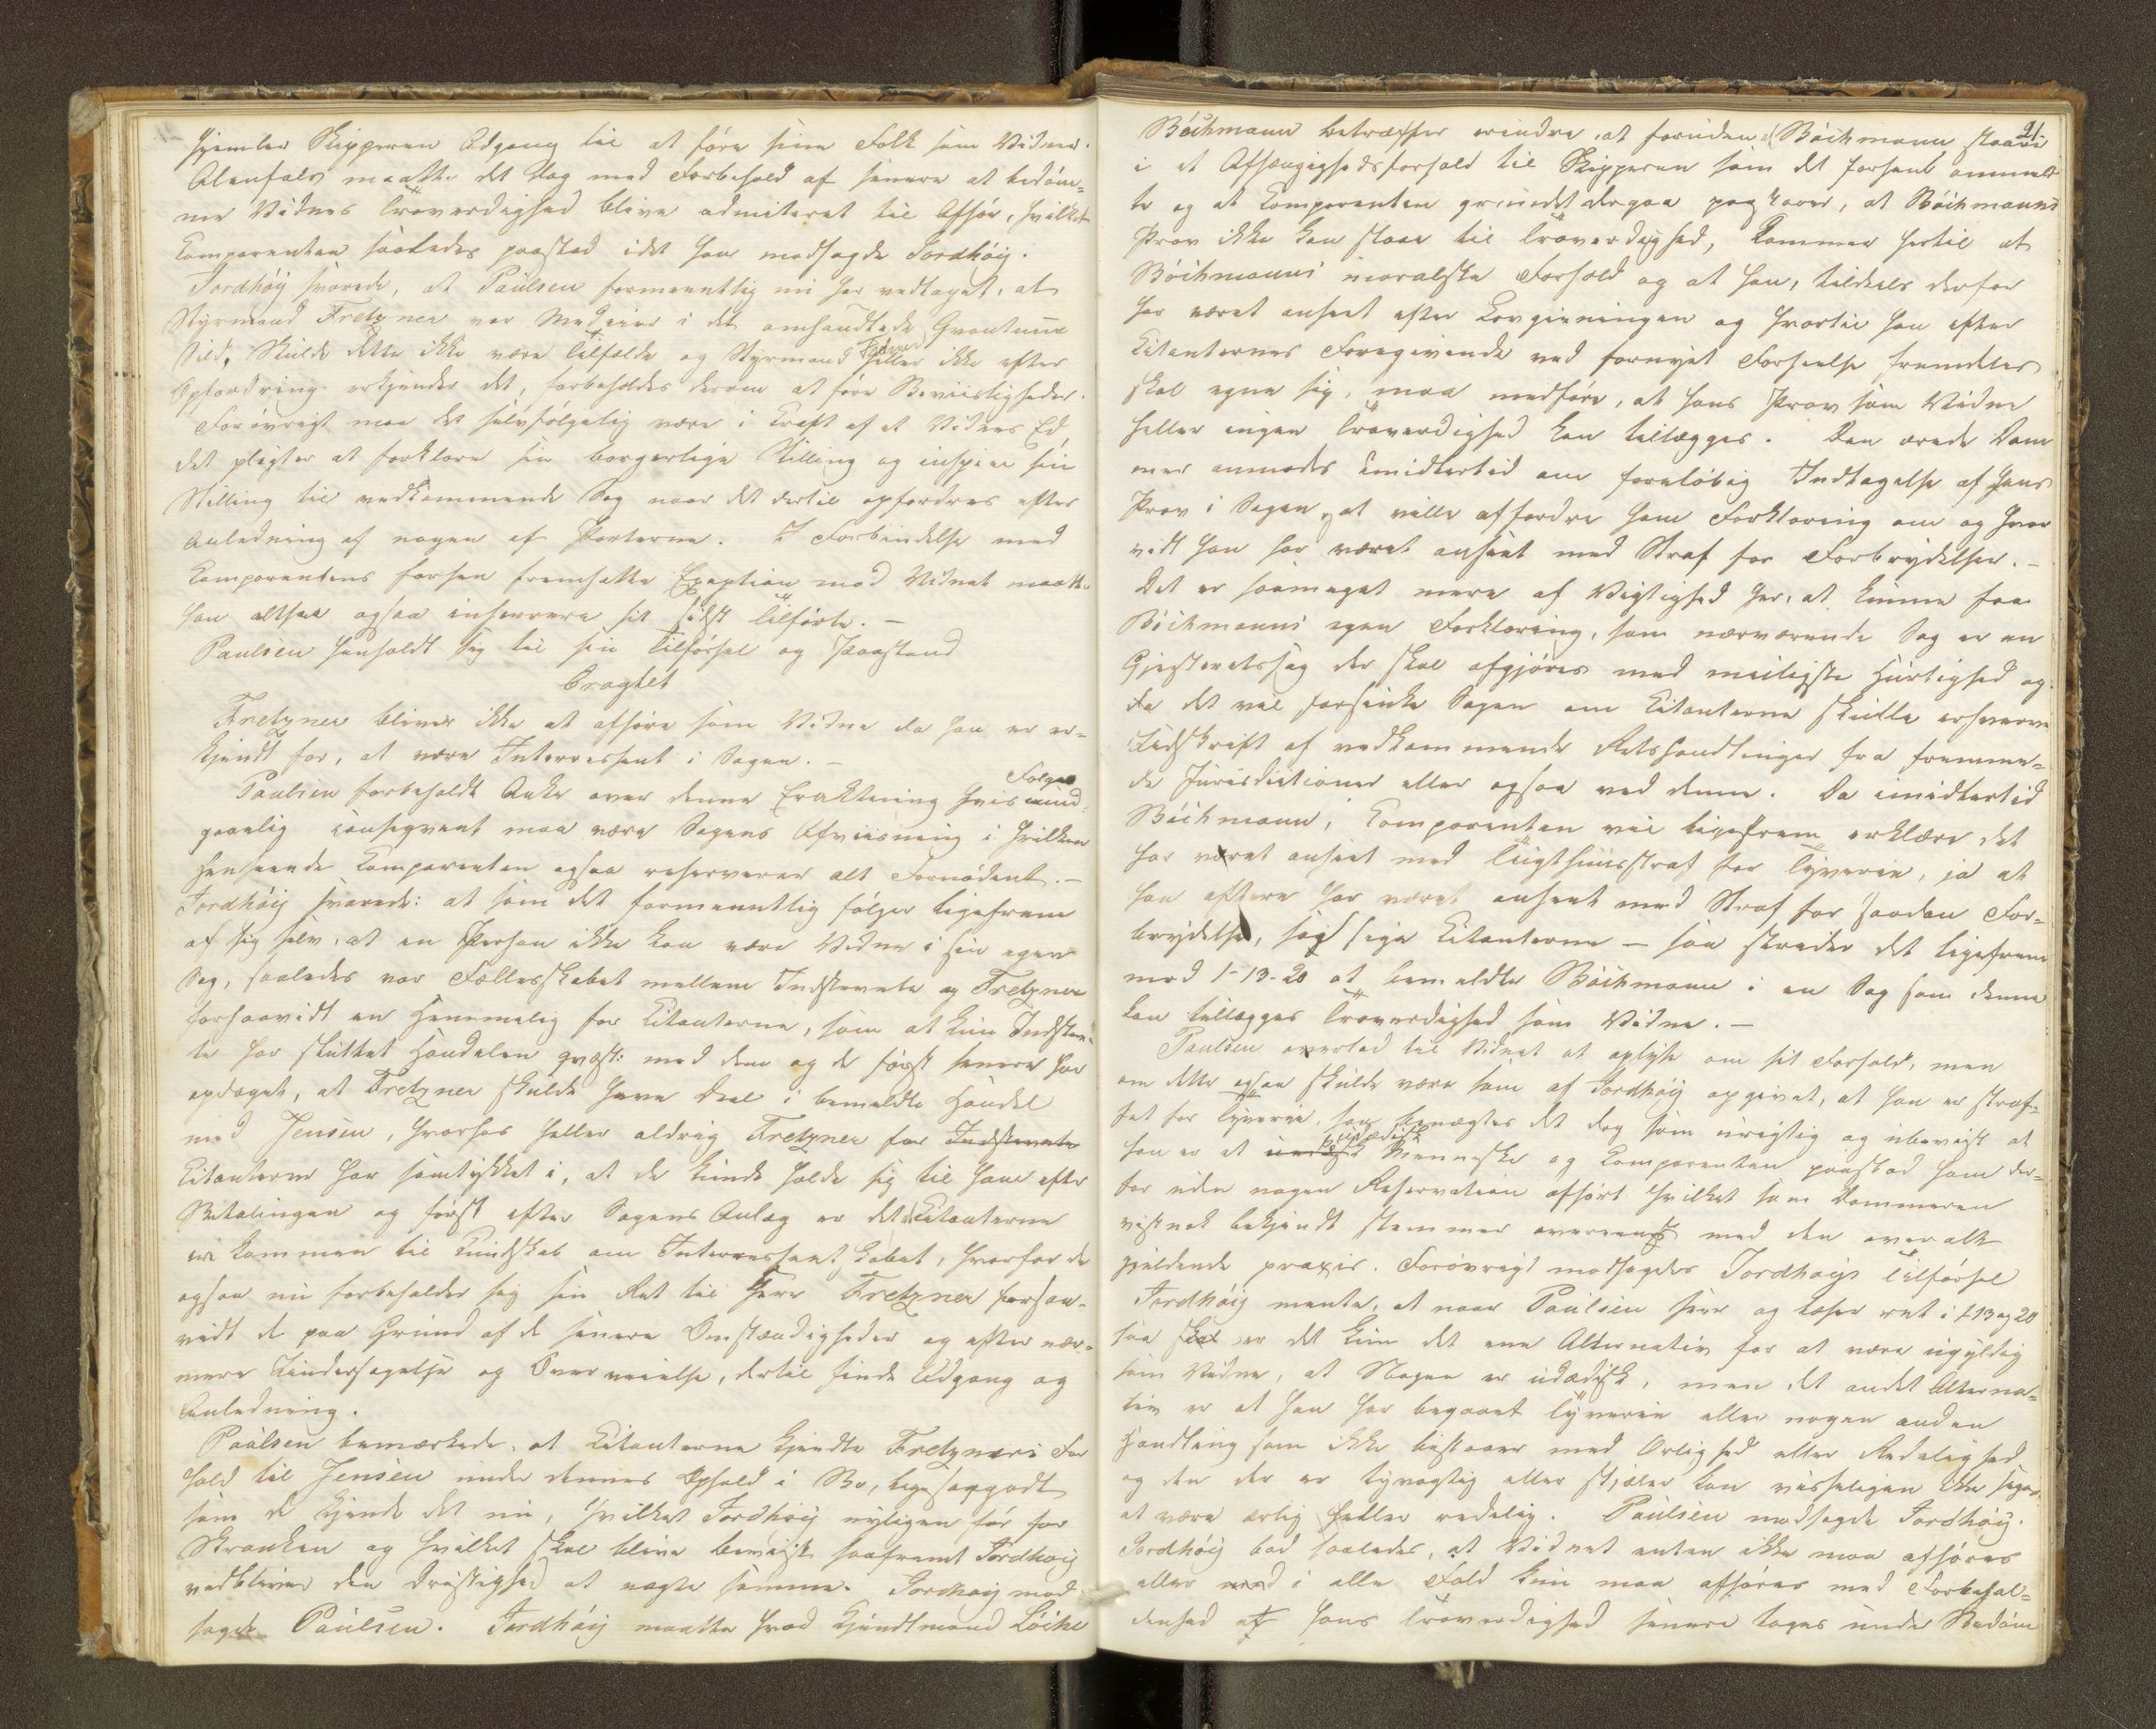 hjemler Skipperen Adgang til at före sine Folk som Vidner.
Alenfals maatte det dog med Forbehold af senere at bedöm-
me Vidnes Troverdighed blive admiteret til Afhör, hvilket
Comparenten saaledes paastod idet han modsagde Jordhöy.
Jordhöy svarede, at Paulsen formeentlig nu har vedtaget, at
Styrmand Fretzner var Medeier i det omhandlede Qvantum
Sild, Skulde dette ikke være Tilfælde og Styrmand Fretzner heller ikke efter
Opfordring erkjender det, forbeholdes derom at före Beviisligheder.
Forövrigt maa det selvfölgelig være i Kraft af et Vidnes Ed
det pligter at forklare sin borgerlige Stilling og sin
Stilling til vedkommende Sag naar det dertil opfordres efter
Anledning af nogen af Parterne. I Forbindelse med
Comparentens forhen fremsatte Exeption mod Vidnet maatte
han altsaa ogsaa inherere sit sidst Tilförte. –
Paulsen henholdt sig til sin Tilförsel og Paastand
Eragtet
Fretzner bliver ikke at afhöre som Vidne da han er er-
kjendt for, at være Interressent i Sagen. –
Paulsen forbeholdt Anke over denne Eraktning hvis Følge
gaaelig conseqvent maa være Sagens Afviisning i hvilken
Henseende Comparenten ogsaa reserverer alt Fornödent. –
Jordhöy svarede: at som det formeentlig fölger ligefrem
af sig selv, at en Person ikke kan være Vidne i sin egen
Sag, saaledes var Fællesskabet mellem Indstevnte og Fretzner
forsaavidt en Hemmelig for Citanterne, som at kun Indstevn-
te har sluttet Handelen qvæst: med dem og de först senere har
opdaget, at Fretzner skulde have Deel i bemeldte Handel
med Jensen, hvorfor heller aldrig Fretzner for Indstevnte
Citanterne har samtykket i, at de kunde holde sig til ham efter
Betalingen og först efter Sagens Anlæg er det Citanterne
ere kommen til Kundskab om Interressentskabet, hvorfor de
ogsaa nu forbeholder sig sin Ret til Herr Fretzner forsaa-
vidt de paa Grund af de senere Omstændigheder og efter nær-
mere Undersøgelse og Overveielse, dertil finde Adgang og
Anledning.
Paulsen bemærkede, at Citanterne kjendte Fretzners For
hold til Jensen under dennes Ophold i Bø, ligesaagodt
som de kjende det nu, hvilket Jordhöy nyligen før for
Skranken og hvilket skal blive beviist saafremt Jordhöy
vedbliver den Dristighed at negte samme. Jordhöy mod
sagde Paulsen. Jordhöy maatte hvad Kjendtmand
Böchmann betræffer erindre, at foruden at Böchmann staaer
i et Afhængighedsforhold til Skipperen som det forhen anmeld
te og at Comparenten grundet derpaa paastaaer, at Böchmanns
Prov ikke kan staae til Troverdighed, kommer hertil at
Böchmanns moralske Forhold og at han, tildeels derfor
har været anseet efter Lovgivningen og hvortil han efter
Citanternes Foregivende ved fornyet Forseelse fremdeles
skal egne sig, maa medföre, at hans Prov som Vidne
heller ingen Troverdighed kan tillægges. Den ærede Dom
mer anmodes imidlertid om forelöbig Indtagelse af hans
Prov i Sagen, at ville affordre ham Forklaring om og hvor
vidt han har været anseet med Straf for Forbrydelser. –
Det er saameget mere af Vigtighed her, at kunne faa
Böchmanns egen Forklaring, som nærværende Sag er en
Gjesteretssag der skal afgjöres med mueligste Hurtighed og
da det vil forsinke Sagen om Citanterne skulle erhverve
Udskrift af vedkommende Retshandlinger fra fremme-
de Jurisdictioner eller ogsaa ved denne. Da imidlertid
Böchmann, Comparenten vil ligefrem erklære det
har været anseet med Tugthuusstraf for Tyverie, ja at
han oftere har været anseet med Straf for saadan For-
brydelse, sige Citanterne – saa strider det ligefrem
mod 1-13-20 at bemeldte Böchmann i en Sag som denne
kan tillægges Troverdighed som Vidne. –
Paulsen overlod til Vidnet at oplyse om sit Forhold, men
om dette ogsaa skulde være som af Jordhöy opgivet, at han er straf-
fet for Tyverie, benægtes det dog som urigtig og ubeviist at
han er et udædisk Menneske og Comparenten paastod ham der-
for uden nogen Reservation afhört hvilket som Dommeren
vistnok bekjendt stemmer overeens med den overalt
gjældende praxis. Forövrigt modsagdes Jordhöys Tilförsel
Jordhöy mente, at naar Paulsen seer og læser ret i 1-13 og 20
saa er det kun det ene Alternativ for at være ugyldig
som Vidne, at Nogen er udædisk, men det andet Alterna-
tiv er at han har begaaet Tyverie eller nogen anden
Handling som ikke bestaaer med Ærlighed eller Redelighed
og den der er tyvagtig eller stjæler kan visseligen ikke siges
at være ærlig heller redelig. Paulsen modsagde Jordhöy.
Jordhöy bad saaledes, at Vidnet enten ikke maa afhöres
eller i alle Fald kun maa afhöres med Forbehol-
denhed at hans Troverdighed senere tages under Bedöm